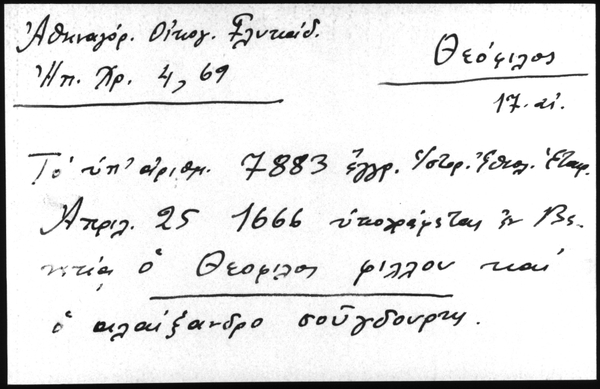 Ἀθηναγόρ. Οἰκογ. Γλυκαίδ.
Ἠπ. Χρ. 4, 69
Θεόφιλος
17. αἰ.
Τό ὑπ' ἀριθμ. 7883 ἔγγρ. Ἱστρ. Ἐθνολ. Ἑταιρ.
Ἀπριλ. 25 1666 ὑπογράφεται ἐν Βε-
νετίᾳ ὁ Θεοφιλος φιλλου καί
ὁ αλαίξανδρο σοῦγδουρτη.